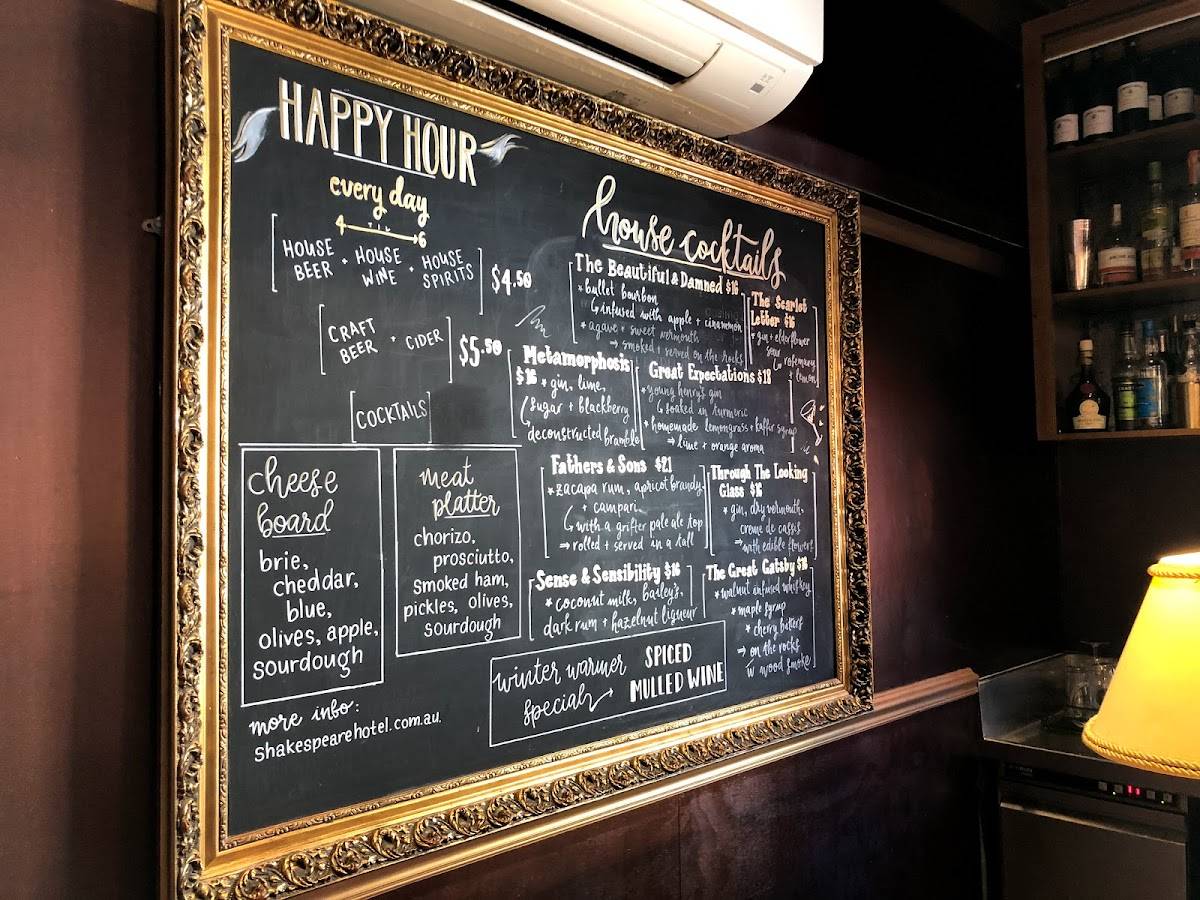 HAPPY HOUR
every day
4 TIL 6
HOUSE BEER + HOUSE WINE + HOUSE SPIRITS $4.50
CRAFT BEER + CIDER $5.50
COCKTAILS
cheese
board
brie,
cheddar,
blue,
olives, apple,
sourdough
meat
platter
chorizo,
prosciutto,
smoked ham,
pickles, olives,
sourdough
more info:
shakespearehotel.com.au
house cocktails
The Beautiful & Damned $16
* bullet bourbon
infused with apple + cinnamon
* agave + sweet vermouth
⇒ smoked + served on the rocks
The Scarlet
Letter $16
* gin + elderflower
sour
rosemary
+ lemon
Metamorphosis
$16 * gin, lime,
sugar + blackberry
deconstructed bramble
Great Expectations $18
* young henry's gin
soaked in turmeric
* homemade lemongrass + kaffir syrup
⇒ lime + orange aroma
Fathers & Sons $21
* zacapa rum, apricot brandy
+ campari
with a grifter pale ale top
⇒ rolled + served in a tall
Through The Looking
Glass $16
* gin, dry vermouth,
creme de casses
⇒ with edible flowers
Sense & Sensibility $16
* coconut milk, bailey's,
dark rum + hazelnut liqueur
The Great Gatsby $18
* walnut infused whiskey
* maple syrup
* cherry bitters
⇒ on the rocks
w wood smoke
winter warmer
special → SPICED
MULLED WINE